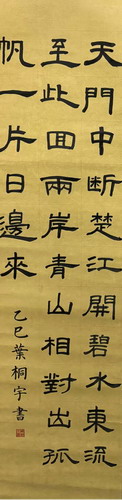 天門中断楚江開碧水東流
至此回兩岸青山相對出孤
帆一片日邊來
乙巳葉桐宇書